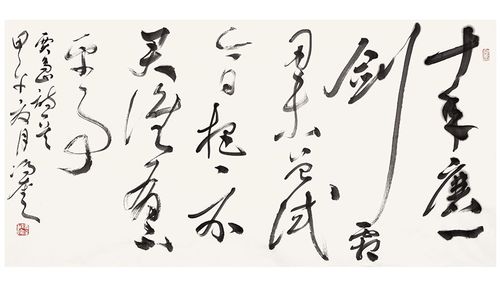 十年磨一
剑霜
刃未曾试
今日把示
君谁有不
平事
贾岛诗
甲午